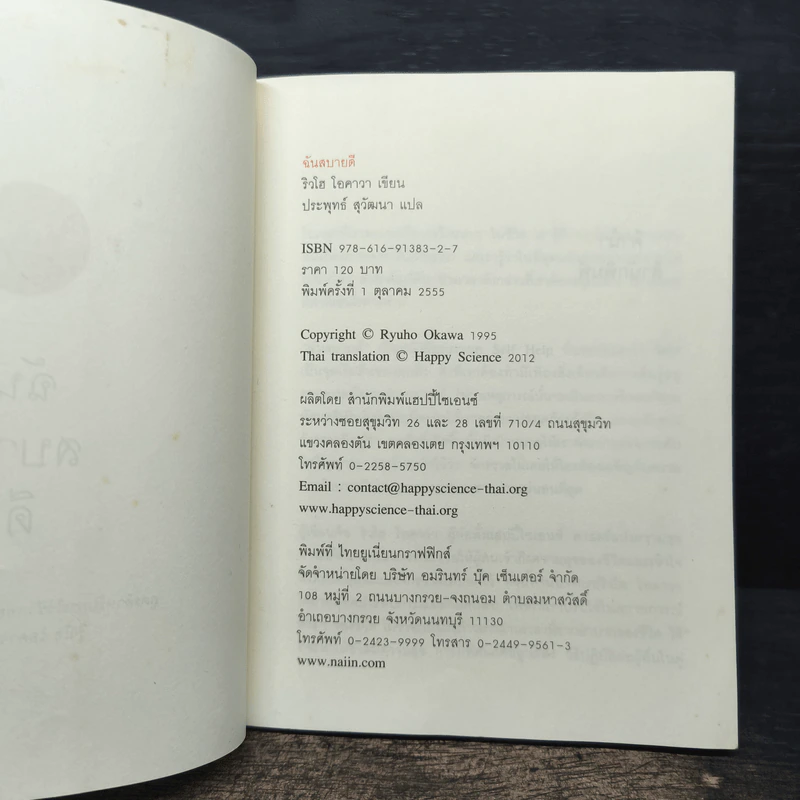 ฉันสบายดี
ริวโฮ โอคาวา เขียน
ประพุทธ์ สุวัฒนา แปล
ISBN 978-616-91383-2-7
ราคา 120 บาท
พิมพ์ครั้งที่ 1 ตุลาคม 2555
Copyright © Ryuho Okawa 1995
Thai translation © Happy Science 2012
ผลิตโดย สำนักพิมพ์แฮปปี้ไซเอนซ์
ระหว่างซอยสุขุมวิท 26 และ 28 เลขที่ 710/4 ถนนสุขุมวิท
แขวงคลองตัน เขตคลองเตย กรุงเทพฯ 10110
โทรศัพท์ 0-2258-5750
Email : contact@happyscience-thai.org
www.happyscience-thai.org
พิมพ์ที่ ไทยยูเนี่ยนกราฟฟิกส์
จัดจำหน่ายโดย บริษัท อมรินทร์ บุ๊ค เซ็นเตอร์ จำกัด
108 หมู่ที่ 2 ถนนบางกรวย-จงถนอม ตำบลมหาสวัสดิ์
อำเภอบางกรวย จังหวัดนนทบุรี 11130
โทรศัพท์ 0-2423-9999 โทรสาร 0-2449-9561-3
www.naiin.com